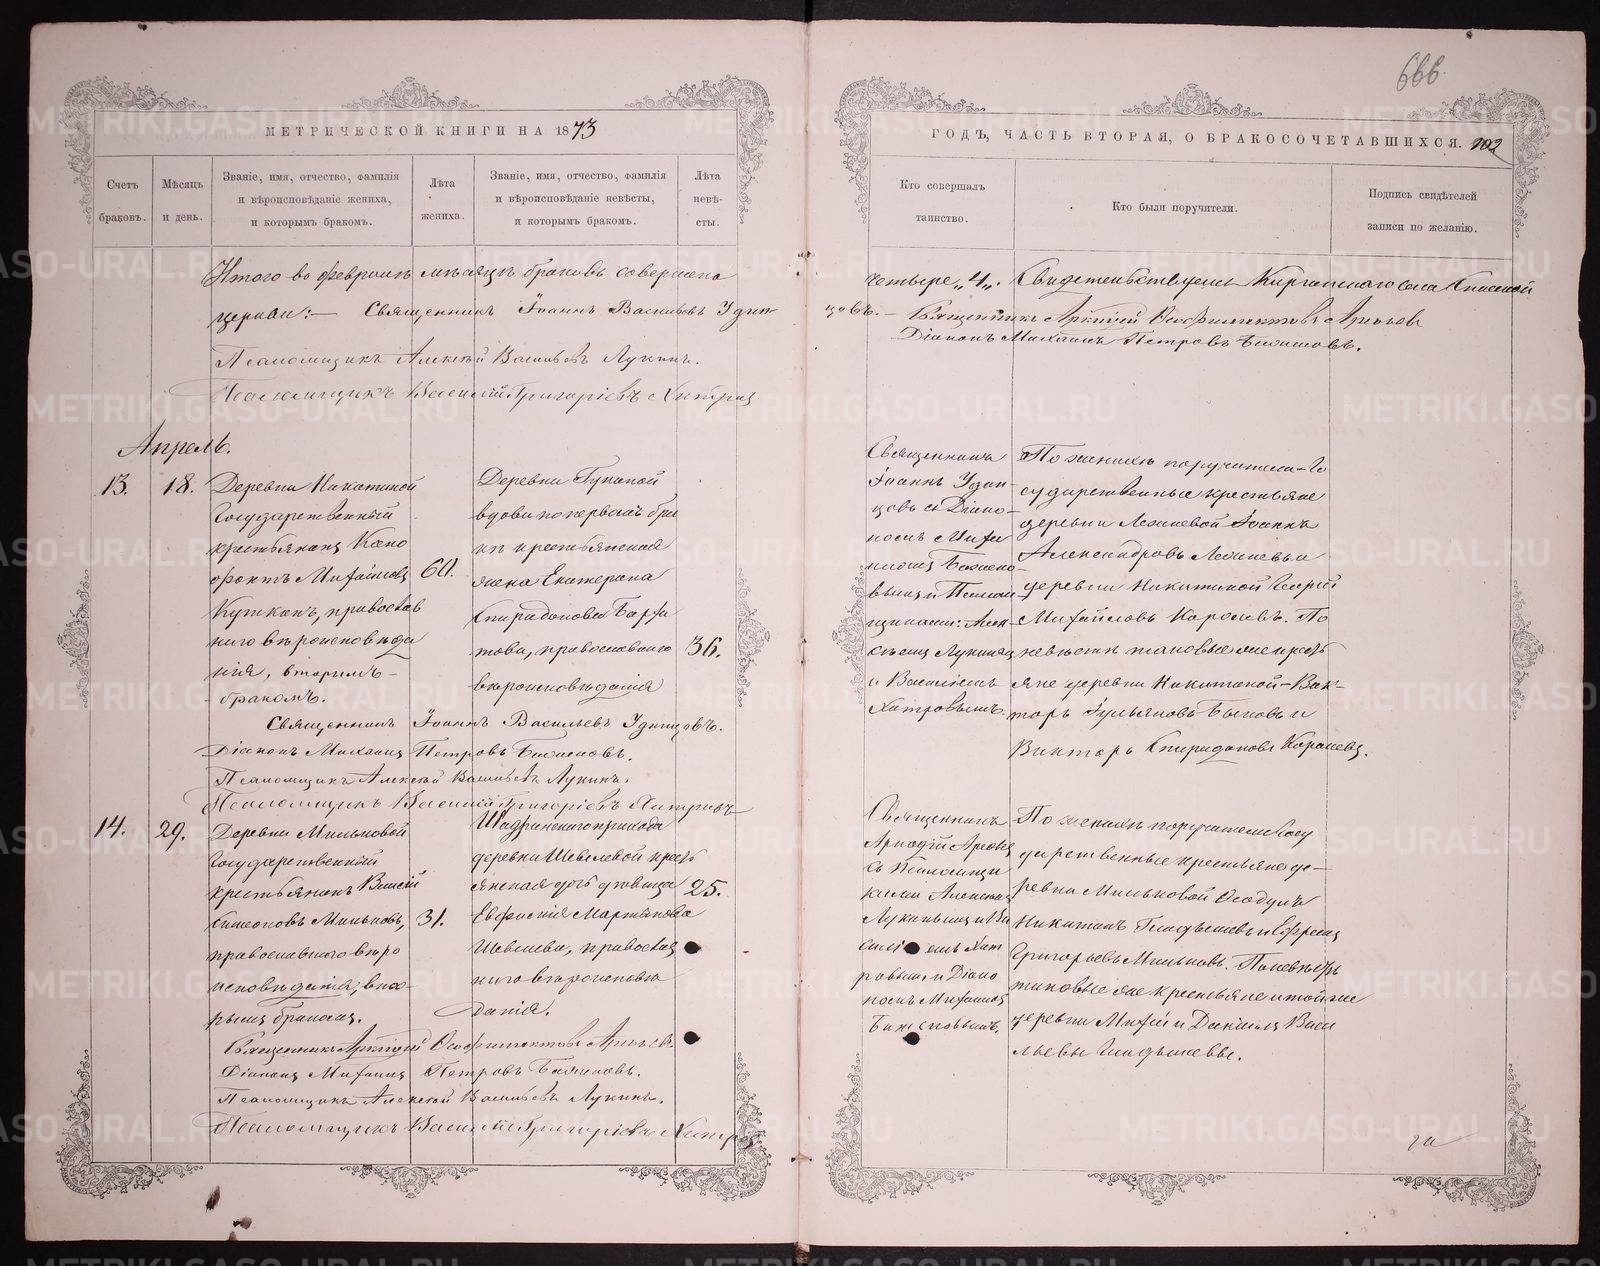 666.
МЕТРИЧЕСКОЙ КНИГИ НА 1873
ГОДЪ, ЧАСТЬ ВТОРАЯ, О БРАКОСОЧЕТАВШИХСЯ. 102
Счетъ браковъ.
Мѣсяцъ и день.
Званіе, имя, отчество, фамилія
и вѣроисповѣданіе жениха,
и которымъ бракомъ.
Лѣта
жениха.
Званіе, имя, отчество, фамилія
и вѣроисповѣданіе невѣсты,
и которымъ бракомъ.
Лѣта
невѣ-
сты.
Кто совершалъ
таинство.
Кто были поручители.
Подпись свидѣтелей
записи по желанію.
Итого въ февралѣ мѣсяцѣ браковъ совершено
четыре „4„. Свидѣтельствуемъ села Спасской
церкви:— Священникъ Іоаннъ Васильевъ Удин
цовъ.— Священникъ Аркадій Феофилактовъ Арефьевъ
Діаконъ Михаилъ Петровъ
Псаломщикъ Алексѣй Васильевъ Лукинъ.
Псаломщикъ Василій Григоріевъ Хитровъ
Апрель.
13. 18.
Деревни Никитиной
Государственный
крестьянинъ
Михайловъ
православ
наго вѣроисповѣда
нія, вторымъ
бракомъ.
60.
Деревни
вдова по первомъ бра
кѣ крестьянская
жена Екатерина
Спиридонова
православнаго
вѣроисповѣданія
36.
Священникъ
Іоаннъ Удин
цовъ съ Діако
номъ Михаи
ломъ
и Псалом
щиками: Алек
сѣемъ Лукинымъ
и Василіемъ
Хитровымъ.
По женихѣ поручители Го
сударственные крестьяне
деревни Іоаннъ
Александровъ и
деревни Никитиной Георгій
Михайловъ Королевъ. По
невѣстѣ таковые же кресть
яне деревни Никитиной — Вик
торъ Быковъ и
Викторъ Спиридоновъ Королевъ.
Священникъ Іоаннъ Васильевъ Удинцовъ.
Діаконъ Михаилъ Петровъ
Псаломщикъ Алексѣй Васильевъ Лукинъ.
Псаломщикъ Василій Григоріевъ Хитровъ
14. 29.
Деревни Мыльковой
Государственный
крестьянинъ
Симеоновъ Мыльковъ,
православнаго вѣро
исповѣданія, вто-
рымъ бракомъ.
31.
прихода
деревни Шевелевой кресть
янская дочь дѣвица
Евфросинія Мартынова
Шевелева, православ
наго вѣроисповѣ
данія.
25.
Священникъ
Аркадій Арефьевъ
съ Псаломщи
ками Алексѣемъ
Лукинымъ и Ва
силіемъ Хит
ровымъ и Діако
номъ Михаиломъ
По женихѣ поручители Госу
дарственные крестьяне де-
ревни Мыльковой
Никитинъ Гладышевъ и
Григорьевъ Мыльковъ. По невѣстѣ
таковые же крестьяне и той же
деревни и Даніилъ Васи
льевы Гладышевы.
Священникъ Аркадій Феофилактовъ Арефьевъ.
Діаконъ Михаилъ Петровъ
Псаломщикъ Алексѣй Васильевъ Лукинъ.
Псаломщикъ Василій Григоріевъ Хитровъ
METRIKI.GASO-URAL.RU